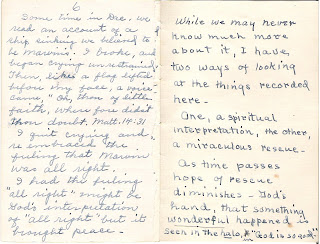 6
Some time in Dec. we
read an account of a
ship sinking we believed to
be Marvin's. I broke, and
began crying unrestrained.
Then, like a flag lifted
before my face, a voice
came, "Oh thou of little
faith, wherefore didst
thou doubt. Matt. 14:31
I quit crying and
re embraced the
feeling that Marvin
was all right.
I had the feeling
"All right" might be
God's interpretation
of "all right" but it
brought peace.
While we may never
know much more
about it, I have,
two ways of looking
at the things recorded
here.
One, a spiritual
interpretation, the other,
a miraculous rescue.
As time passes
hope of rescue
diminishes - God's
hand, that something
wonderful happened is
seen in the halo, & "God is so good."